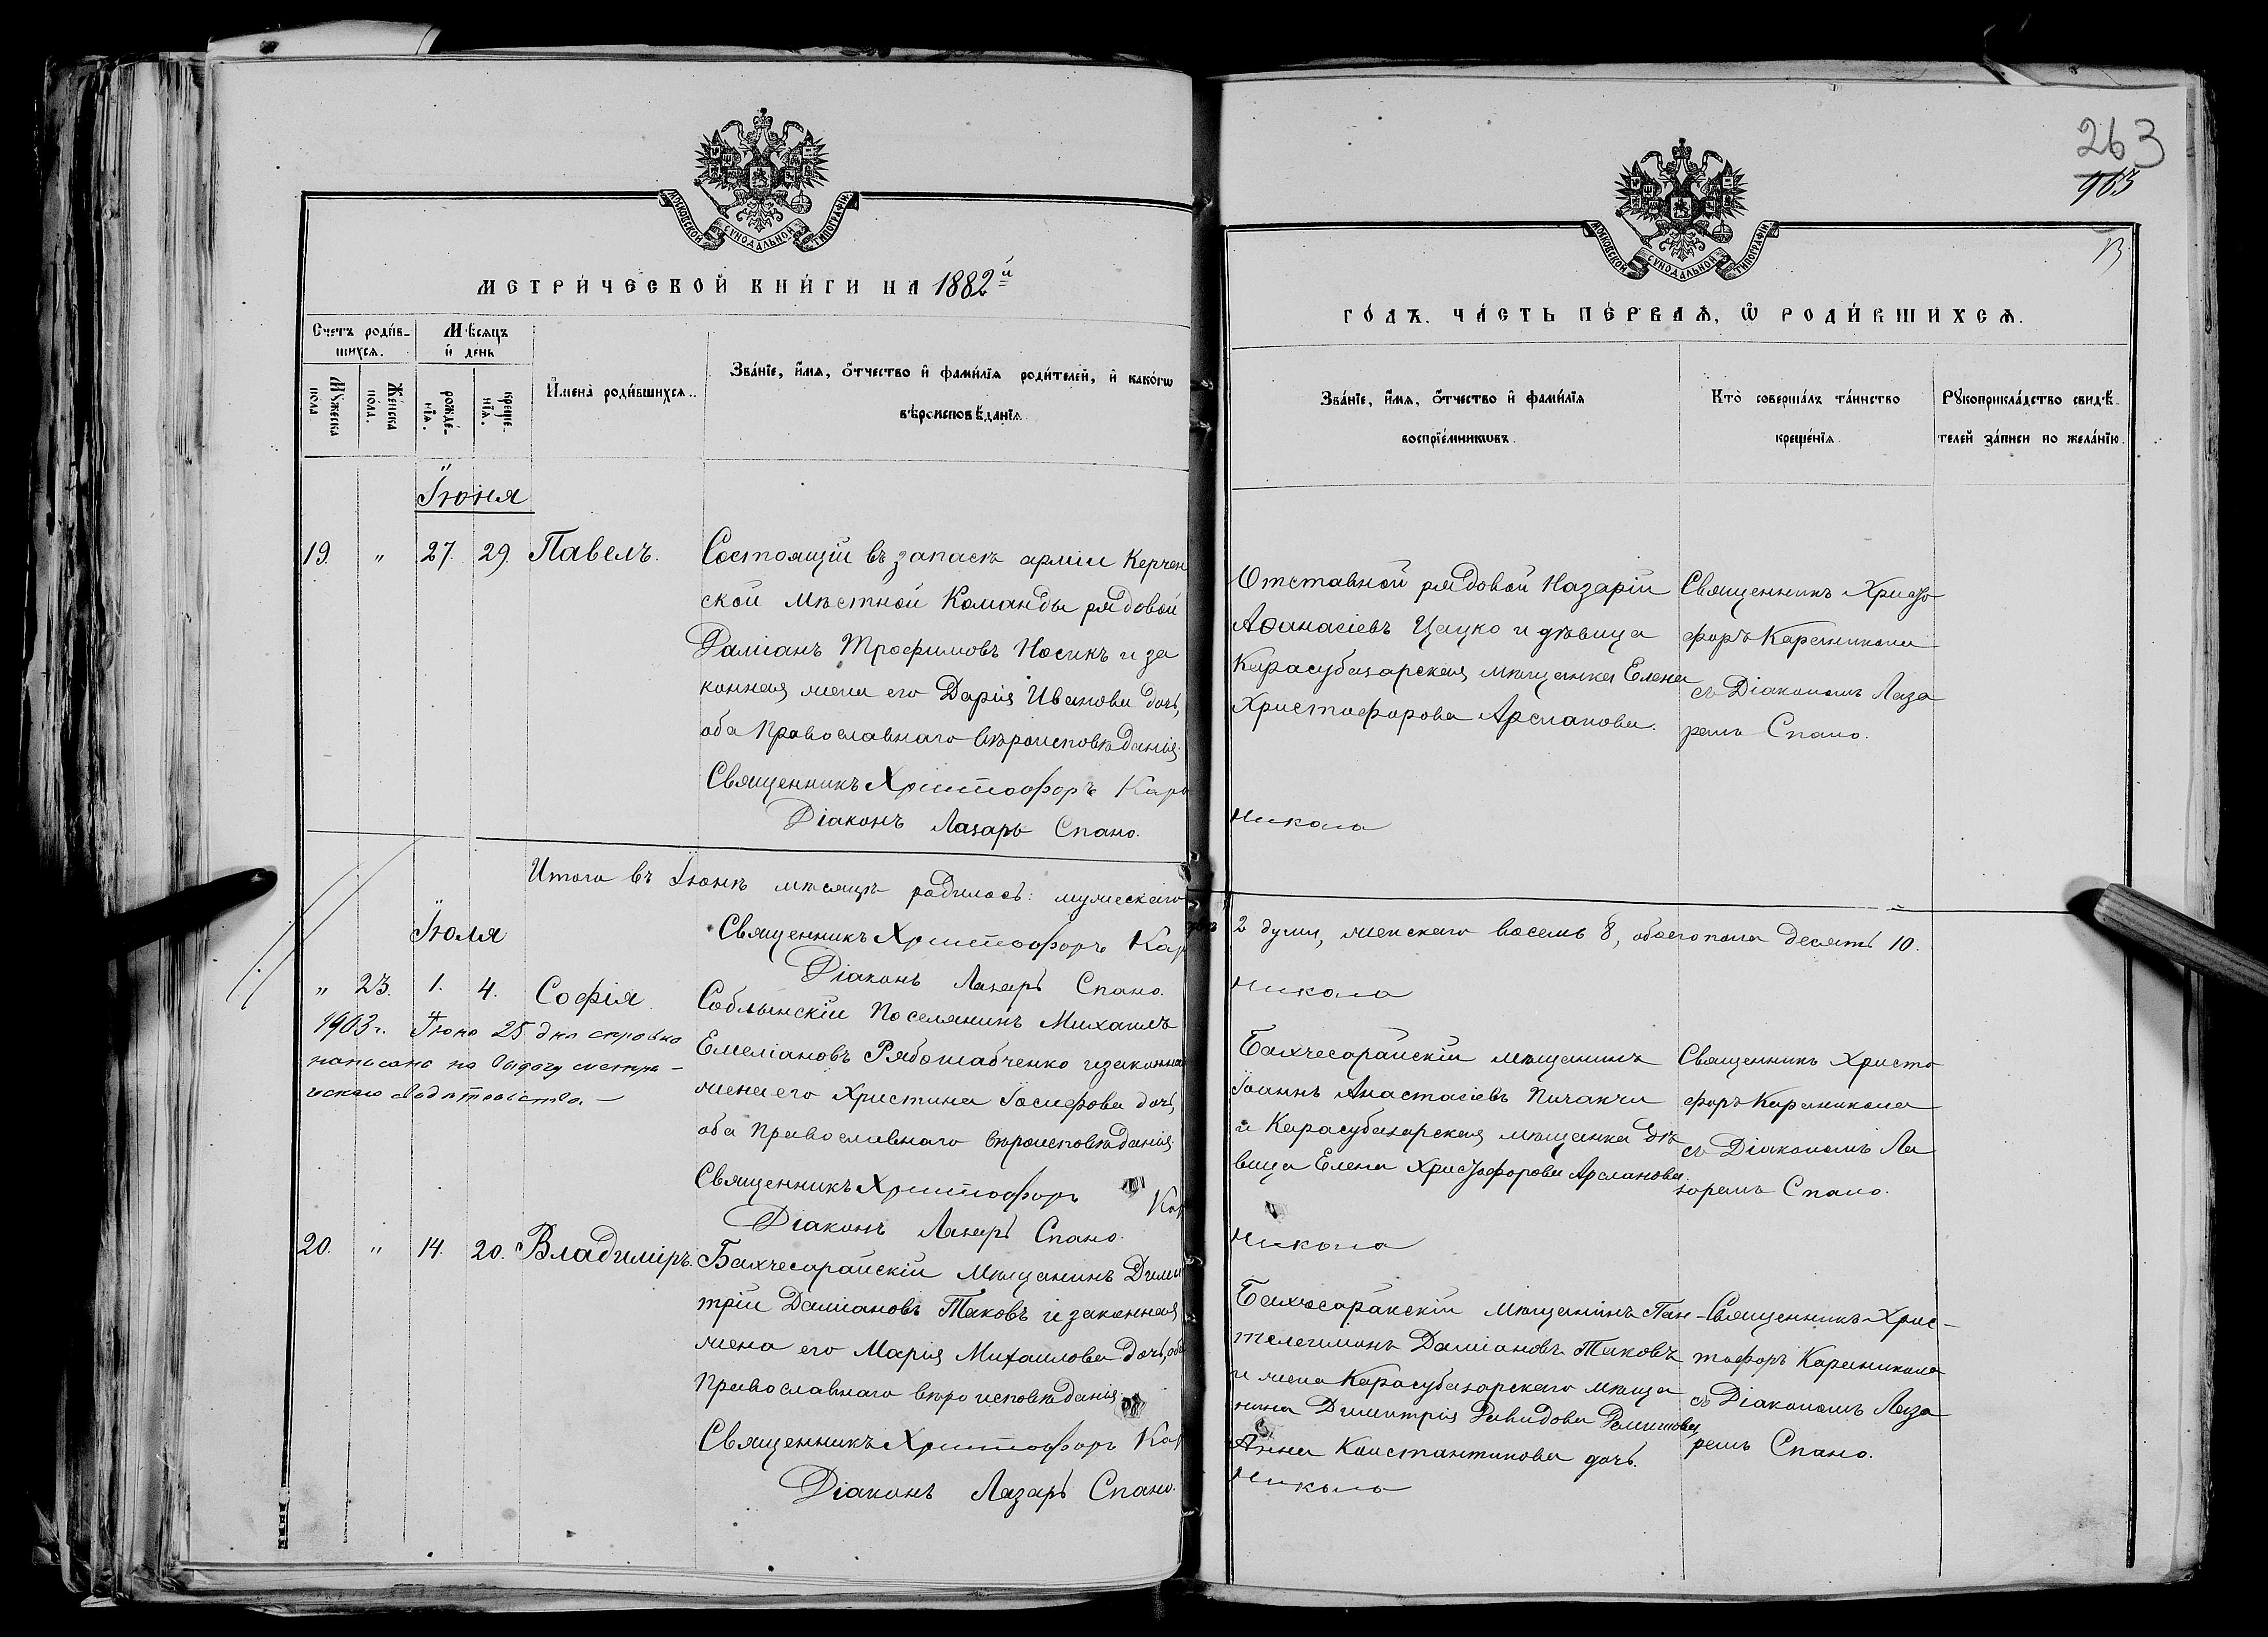 МОСКОВСКОЙ СѴНОДАЛЬНОЙ ТИПОГРАФІИ.
МЕТРИ́ЧЕСКОЙ КНИ́ГИ НА 1882й
Счетъ роди́в-
шихся.
Мѣ́сяцъ
и҆ день
И҆мена̀ роди́вшихся.
Зва́нїе, и҆́мя, о҆́тчество и҆ фами́лїя роди́телей, и҆ како́гѡ
вѣроисповѣ́данїя.
Мꙋ́жеска
по́ла
Же́нска
по́ла.
рожде́-
нїя.
креще́-
нїя.
Іюня
19. " 27. 29. Павелъ.
Состоящій въ запасѣ арміи Керчен
ской мѣстной Команды рядовой
Даміанъ Трофимовъ Носикъ и за
конная жена его Дарія Иванова дочь,
оба Православнаго вѣроисповѣданія.
Священникъ Христофоръ Кара
Діаконъ Лазарь Спано.
Итого въ Іюнѣ мѣсяцѣ родилось: мужескаго
Священникъ Христофоръ Кар
Діаконъ Лазарь Спано.
Іюля
" 23. 1. 4. Софія.
1903 г. Іюня 25 дня
Саблынскій Поселянинъ Михаилъ
Емеліановъ Рябошабченко и законная
жена его Христина Іосифова дочь,
оба Православнаго вѣроисповѣданія.
Священникъ Христофоръ Кар
Діаконъ Лазарь Спано.
20. " 14. 20. Владиміръ.
Бахчесарайскій Мѣщанинъ Дими
трій Даміановъ Таковъ и законная
жена его Марія Михаилова дочь, оба
Православнаго вѣроисповѣданія.
Священникъ Христофоръ Кар
Діаконъ Лазарь Спано.
263
963
МОСКОВСКОЙ СѴНОДАЛЬНОЙ ТИПОГРАФІИ.
ГО́ДЪ. ЧА́СТЬ ПЕ́РВАѦ, Ѡ҆ РОДИ́ВШИХСѦ.
Зва́нїе, и҆́мя, о҆́тчество и҆ фами́лїя
воспрїе́мникѡвъ.
Кто̀ соверша́лъ та́инство
креще́нїя.
Рꙋкоприкла́дство свидѣ́-
телей за́писи по жела́нїю.
Отставной рядовой Назарій
Аѳанасіевъ Цацко и дѣвица
Карасубазарская мѣщанка Елена
Христофорова Арсланова.
Священникъ Христо
форъ Караникола
съ Діакономъ Лаза
ремъ Спано.
никола
2 души, женскаго восемь 8, обоего пола десять 10.
никола
Бахчесарайскій мѣщанинъ
Іоаннъ Анастасіевъ Пичакчи
и Карасубазарская мѣщанка дѣ
вица Елена Христофорова Арсланова.
Священникъ Христо
форъ Караникола
съ Діакономъ Ла
заремъ Спано.
никола
Бахчесарайскій мѣщанинъ Пан-
телеимонъ Даміановъ Таковъ
и жена Карасубазарскаго мѣща
нина Димитрія Давидова
Анна Константинова дочь.
Священникъ Хрис-
тофоръ Караникола
съ Діакономъ Лаза
ремъ Спано.
никола